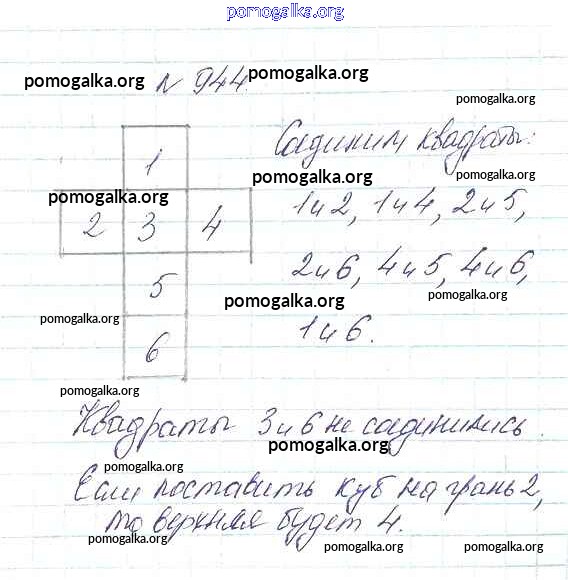 pomogalka.org
pomogalka.org
№ 944
pomogalka.org
pomogalka.org
Соединим квадраты:
1
pomogalka.org
pomogalka.org
pomogalka.org
2 3 4
1 и 2, 1 и 4, 2 и 5,
5
2 и 6, 4 и 5, 4 и 6,
pomogalka.org
pomogalka.org
pomogalka.org
6
1 и 6.
pomogalka.org
Квадраты 3 и 6 не соединились.
pomogalka.org
pomogalka.org
Если поставить куб на грань 2,
pomogalka.org
то верхняя будет 4.
pomogalka.org
pomogalka.org
pomogalka.org